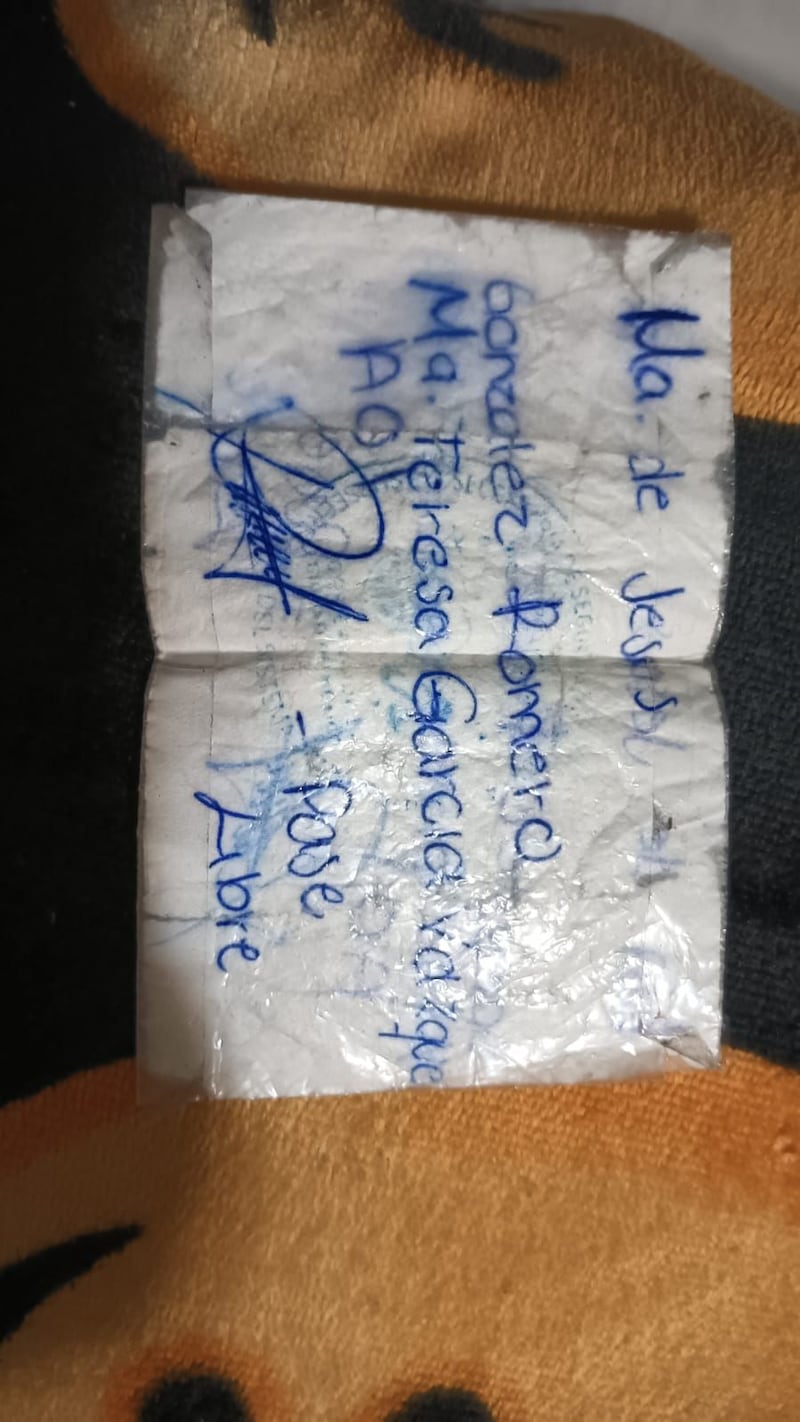 Ma. de Jesusa
Gonzalez Romero
Ma. Teresa Garcia Vazque
AG
- Pase
Libre